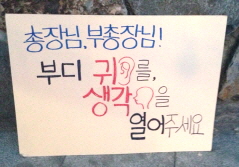 총장님, 부총장님!
부디 귀를,
생각을
열어주세요